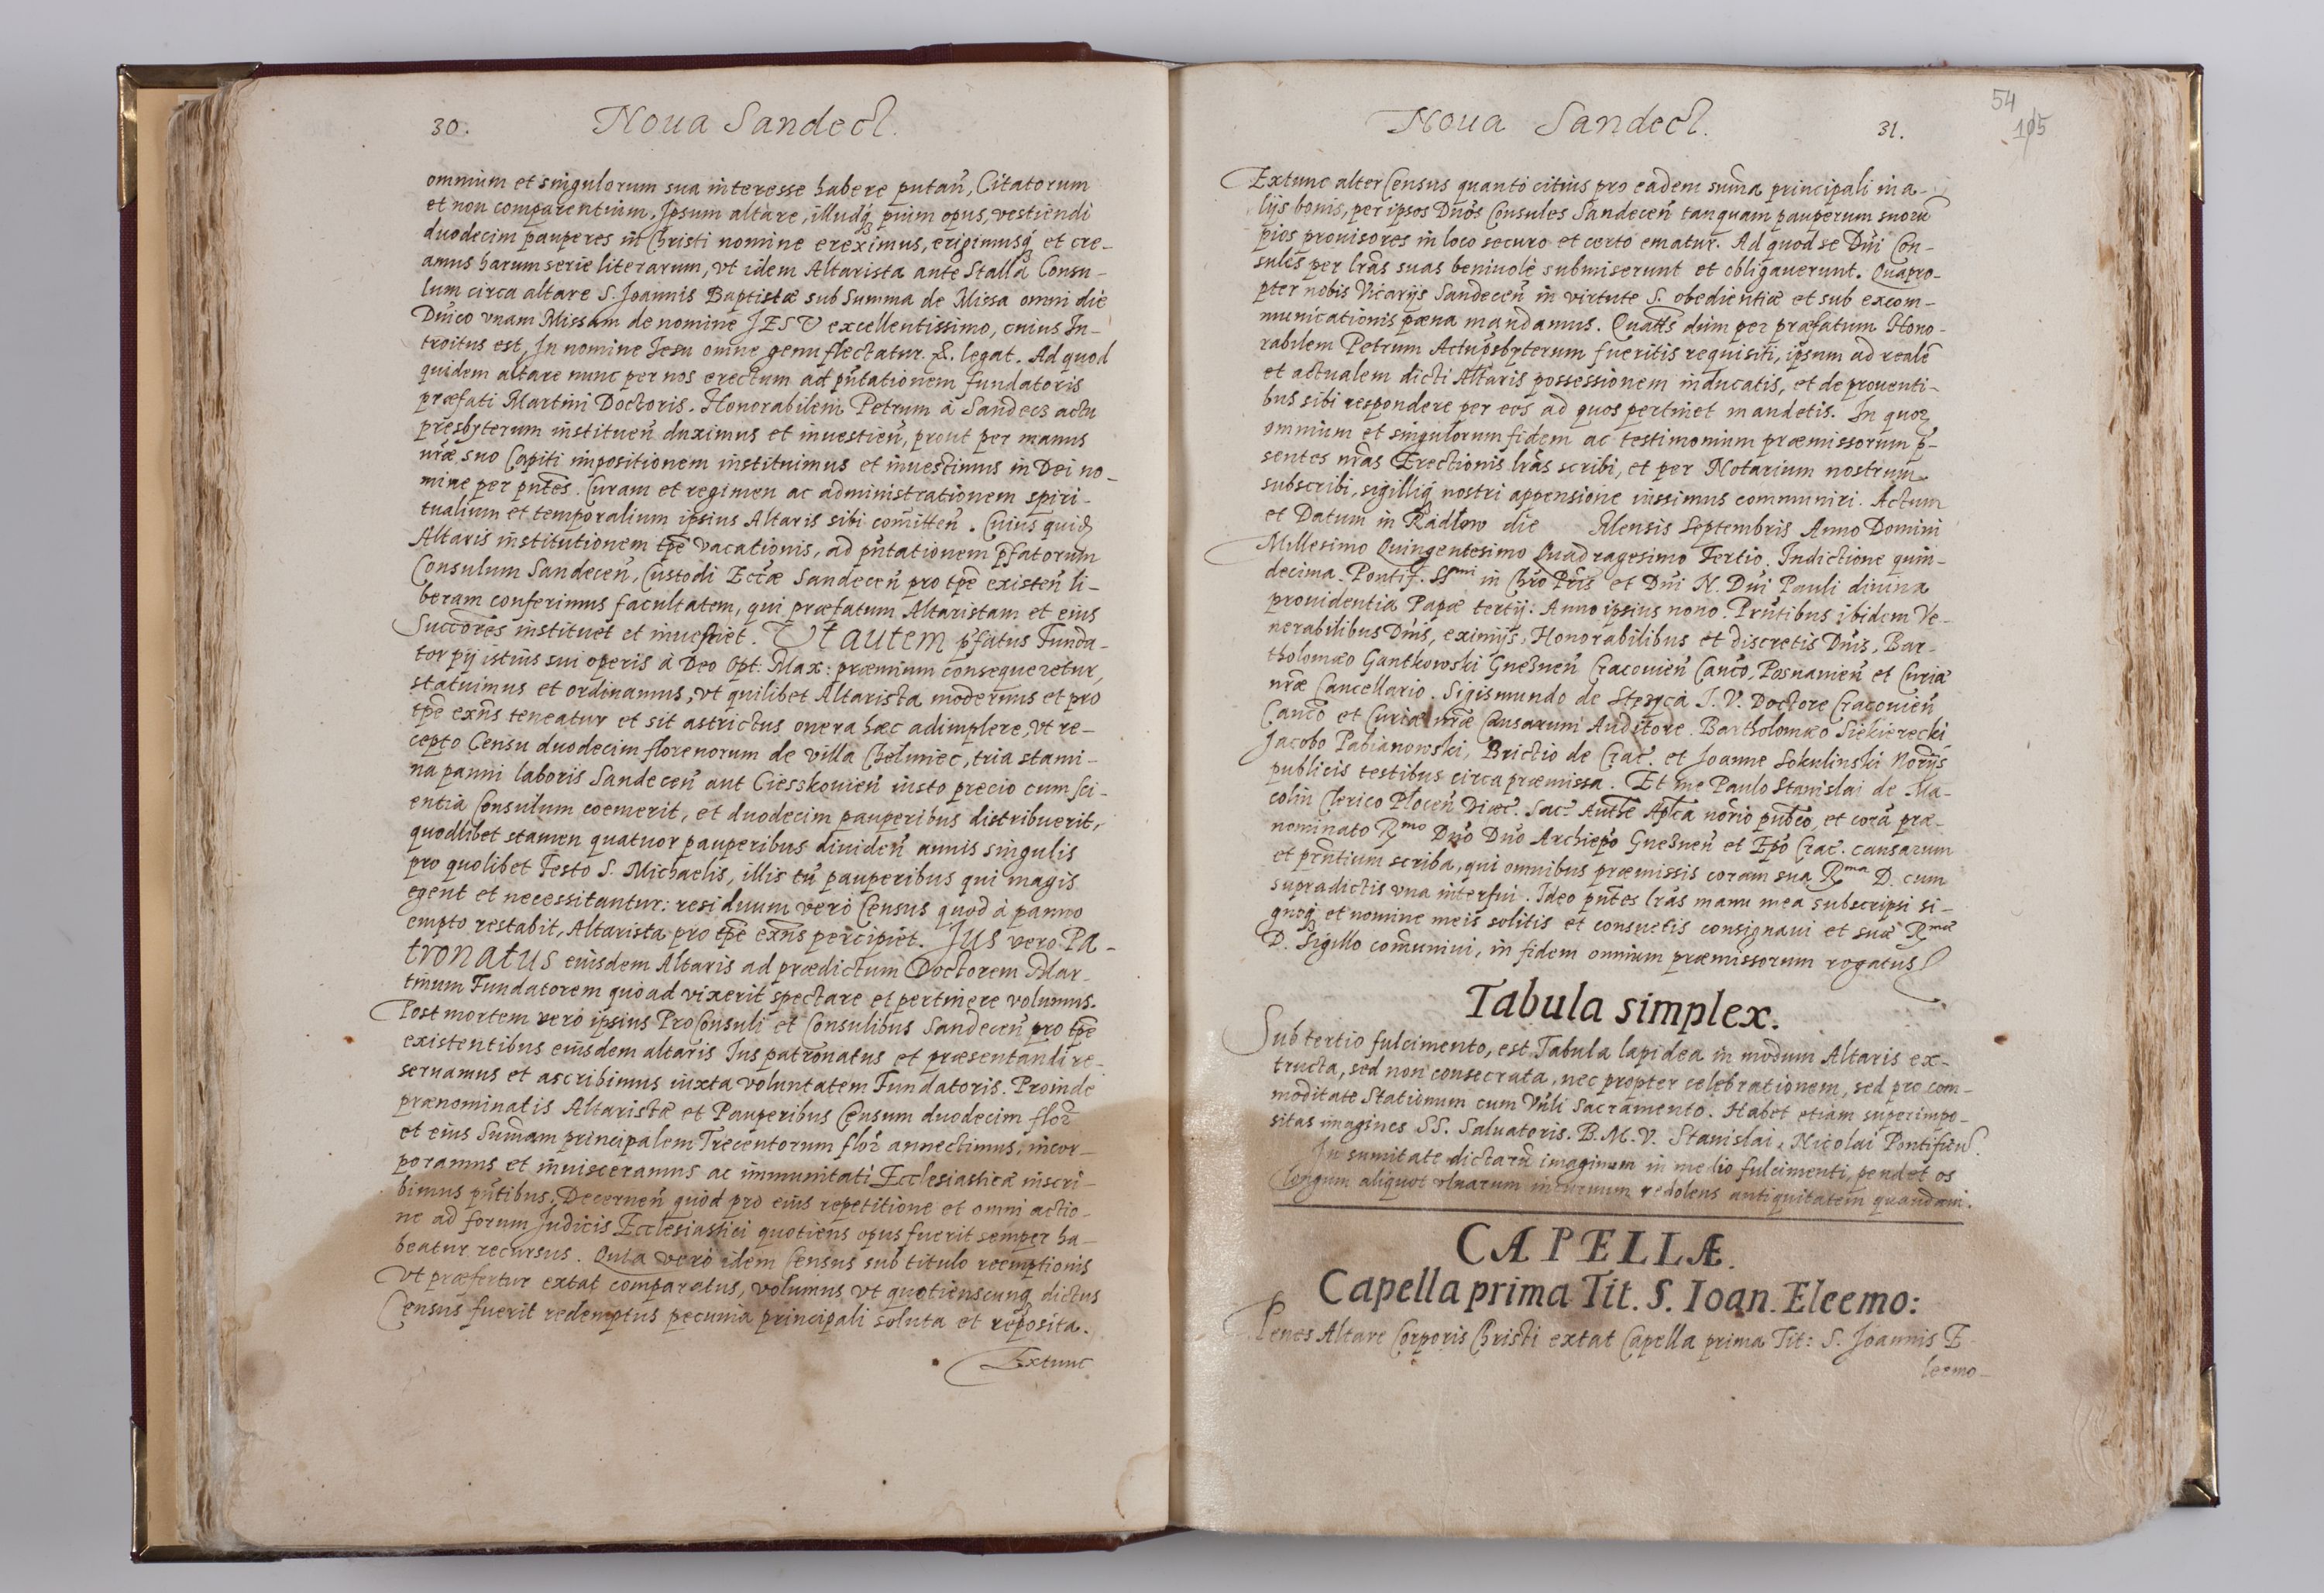 30. Noua Sandecz.
omnium et singulorum sua interesse habere putañ, Citatorum
et non comparentium, Ipsum altare, illudq́ pium opus, vestiendi
duodecim pauperes in Christi nomine ereximus, erigimusq́ et cre-
amus harum serie literarum, vt idem Altarista ante Stalla Consu-
lum circa altare S. Joannis Baptistæ sub Summa de Missa omni die
Dnico vnam Missam de nomine JESU excellentissimo, cuius In-
troitus est, In nomine Jesu omne genu flectatur. &. legat. Ad quod
quidem altare nunc per nos erectum ad pñtationem fundatoris
præfati Martini Doctoris, Honorabilem Petrum à Sandecz actu
presbyterum instituen̄ duximus et inuestien̄, prout per manus
nræ suo Capiti impositionem instituimus et inuestimus in Dei no-
mine per pñtes. Curam et regimen ac administrationem spiri-
tualium et temporalium ipsius Altaris sibi com̄itten̄. Cuius quid
Altaris institutionem tp̄e vacationis, ad pñtationem p̄fatorum
Consulum Sandecen̄, Custodi Eccæ Sandecen̄ pro tp̄e existen̄ li-
beram conferimus facultatem, qui præfatum Altaristam et eius
Succores instituet et inuestiet. Vt autem p̄fatus Funda-
tor pij istius sui operis à Deo Opt: Max: præmium consequeretur,
statuimus et ordinamus, vt quilibet Altarista modernus et pro
tp̄e exn̄s teneatur et sit astrictus onera hæc adimplere, vt re-
cepto Censu duodecim florenorum de villa Chełmiec, tria stami-
na panni laboris Sandecen̄ aut Ciesskouien̄ iusto precio cum sci-
entia Consulum coemerit, et duodecim pauperibus distribuerit,
quodlibet stamen quatuor pauperibus diuiden̄ annis singulis
pro quolibet Festo S. Michaelis, illis tn̄ pauperibus qui magis
egent et necessitantur: residuum verò Census quod à panno
empto restabit, Altarista pro tp̄e exn̄s percipiet. Jus vero Pa-
tronatus eiusdem Altaris ad prædictum Doctorem Mar-
tinum Fundatorem quoad vixerit spectare et pertinere volumus.
Post mortem verò ipsius ProConsuli et Consulibus Sandecen̄ pro tp̄e
existentibus eiusdem altaris Jus patronatus et præsentandi re-
seruamus et ascribimus iuxta voluntatem Fundatoris. Proinde
prænominatis Altaristæ et Pauperibus Censum duodecim flor
et eius Summam principalem Trecentorum flor annectimus, incor-
poramus et inuisceramus ac immunitati Ecclesiasticæ inscri-
bimus pñtibus, Decernen̄ quòd pro eius repetitione et omni actio-
ne ad forum Judicis Ecclesiastici quotiens opus fuerit semper ha-
beatur recursus. Quia verò idem Census sub titulo reemptionis
vt præfertur extat comparatus, volumus vt quotienscunq́ dictus
Census fuerit redemptus pecunia principali soluta et reposita.
Extunc
54
105
Noua Sandecz. 31.
Extunc alter Census quantò citius pro eadem sum̄a principali in a-
lijs bonis, per ipsos Dnos Consules Sandecen̄ tanquam pauperum suorū
pios prouisores in loco securo et certo ematur. Ad quod se Dni Con-
sules per lras suas beniuolè submiserunt et obligauerunt. Quapro-
pter nobis Vicarijs Sandecen̄ in virtute S. obedientiæ et sub excom-
municationis pæna mandamus. Quatts dum per præfatum Hono-
rabilem Petrum Actupsbyterum fueritis requisiti, ipsum ad realē
et actualem dicti Altaris possessionem inducatis, et de prouenti-
bus sibi respondere per eos ad quos pertinet mandetis. In quoꝝ
omnium et singulorum fidem ac testimonium præmissorum p̄-
sentes nras Erectionis lras scribi, et per Notarium nostrum
subscribi, sigilliq́ nostri appensione iussimus communiri. Actum
et Datum in Radłow die Mensis Septembris Anno Domini
Millesimo Quingentesimo Quadragesimo Tertio. Indictione quin-
decima. Pontif. SSmi in Chro Pris et Dni N. Dni Pauli diuina
prouidentia Papæ tertij: Anno ipsius nono. Prn̄tibus ibidem Ve-
nerabilibus Dnis, eximijs, Honorabilibus et discretis Dnis, Bar-
tholomæo Gantkowski Gnesnen̄ Cracouien̄ Canco, Posnanien̄ et Curiæ
nræ Cancellario. Sigismundo de Stezyca J. V. Doctore Cracouien̄
Canco et Curiæ nræ Causarum Auditore. Bartholomæo Siekierecki
Jacobo Pabianowski, Brictio de Crac. et Joanne Sokulinski Norijs
publicis testibus circa præmissa. Et me Paulo Stanislai de Ma-
colin Clerico Plocen̄ Diæc. Sac. Autte Aplca norio pubco et corā præ-
nominato Rmo Dno Dno Archiepo Gnesnen̄ et Epo Crac. causarum
et prn̄tium scriba, qui omnibus præmissis coram sua Rma D. cum
supradictis vna interfui. Ideo pñtes lras manu mea subscripsi si-
gnoq́ et nomine meis solitis et consuetis consignaui et suæ Rmæ
D. Sigillo com̄uniui, in fidem omnium præmissorum rogatus
Tabula simplex.
Sub tertio fulcimento, est Tabula lapidea in modum Altaris ex-
tructa, sed non consecrata, nec propter celebrationem, sed pro com-
moditate Stationum cum Vnli Sacramento. Habet etiam superimpo-
sitas imagines SS. Saluatoris. B. M. V. Stanislai, Nicolai Pontificū.
In sumitate dictarū imaginum in medio fulcimenti, pendet os
longum aliquot vlnarum incuruum redolens antiquitatem quandam.
CAPELLÆ.
Capella prima Tit. S. Ioan. Eleemo:
Penes Altare Corporis Christi extat Capella prima Tit: S. Joannis E
leemo-